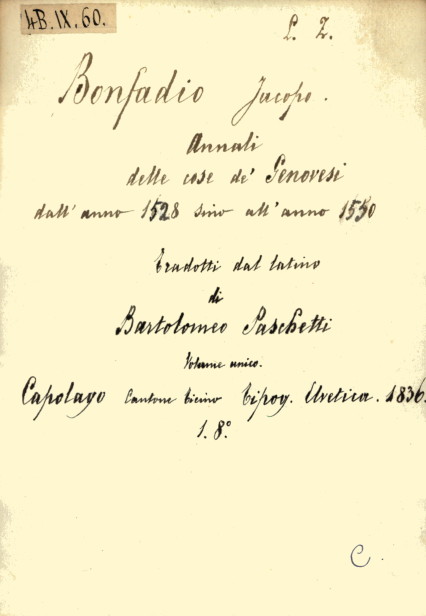 4B.IX.60.
L. Z.
Bonfadio Jacopo.
Annali
delle cose de' Genovesi
dall'anno 1528 sino all'anno 1550
Tradotti dal latino
di
Bartolomeo Paschetti
Volume unico.
Capolago Cantone Ticino Tipog. Elvetica. 1836.
1. 8°.
C.